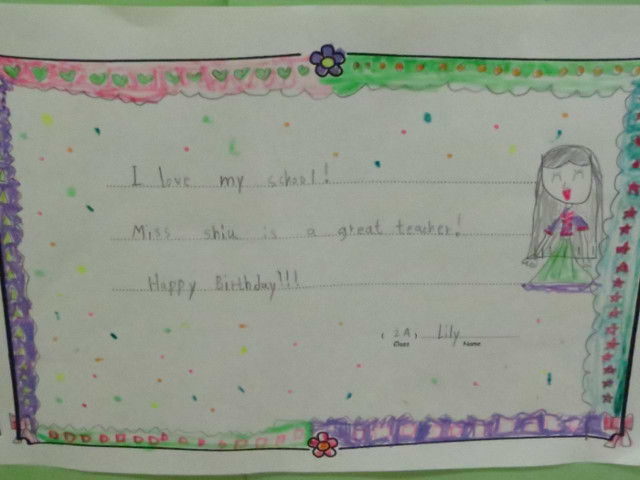 I love my school!
Miss shiu is a great teacher!
Happy Birthday!!!
( 2A ) Lily
Class Name